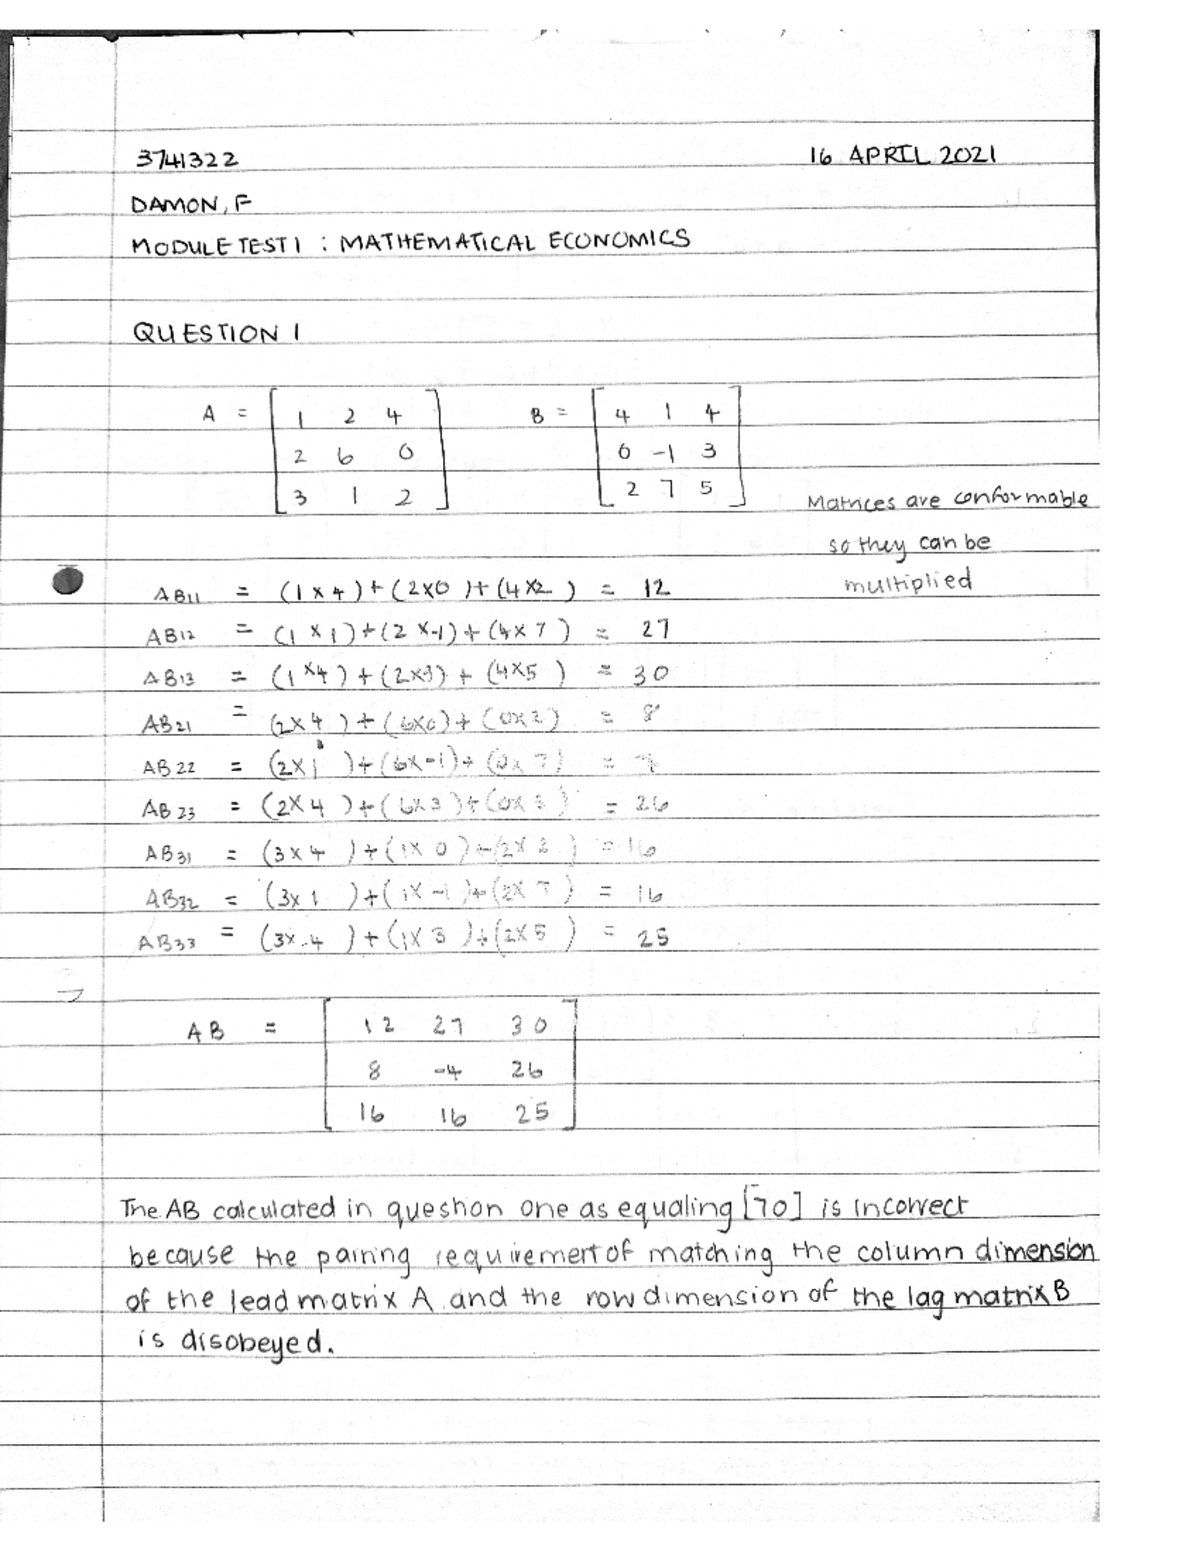 3741322 16 APRIL 2021
DAMON, F
MODULE TEST 1 : MATHEMATICAL ECONOMICS
QUESTION 1
A = [ 1 2 4 B = [ 4 1 4
2 6 0 0 -1 3
3 1 2 ] 2 7 5 ]
Matrices are conformable
so they can be
multiplied
AB11 = (1 x 4) + (2x0) + (4x2) = 12
AB12 = (1 x 1) + (2 x-1) + (4x 7) = 27
AB13 = (1 x4) + (2x3) + (4x5) = 30
AB21 = (2x 4) + (6x0) + (0x2) = 8
AB22 = (2x1) + (6x-1) + (0x 7) =
AB23 = (2x 4) + (6x3) + (0x5) = 26
AB31 = (3 x 4) + (1x 0) + (2x 2) = 16
AB32 = (3x 1) + (1x -1) + (2x 7) = 16
AB33 = (3x 4) + (1x 3) + (2x5) = 25
AB = [ 12 27 30
8 -4 26
16 16 25 ]
The AB calculated in question one as equaling [70] is incorrect
because the pairing requirement of matching the column dimension
of the lead matrix A and the row dimension of the lag matrix B
is disobeyed.